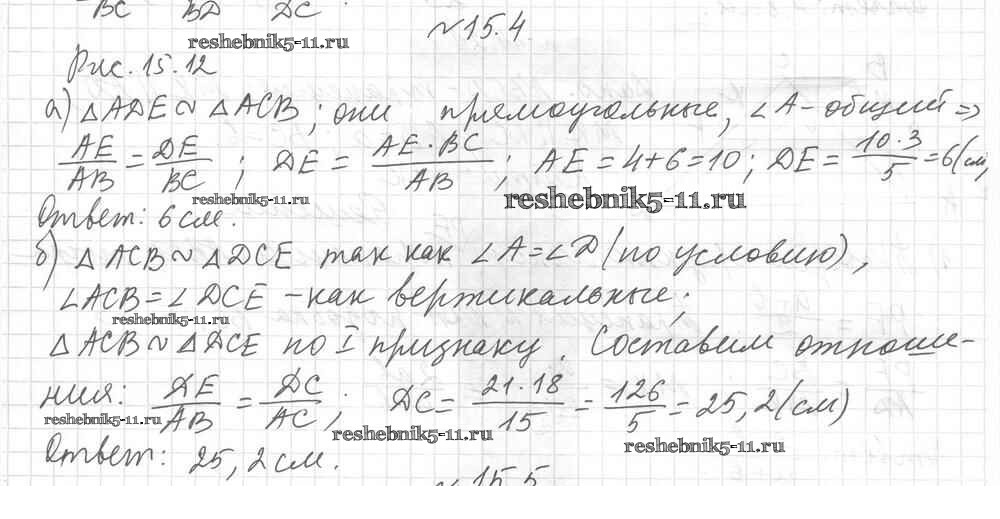 BC BD DC
№15.4
reshebnik5-11.ru
Рис. 15.12
а) △ADE ~ △ACB ; они прямоугольные, ∠A - общий =>
AE/AB = DE/BC ; DE = AE·BC/AB ; AE = 4+6=10 ; DE = 10·3/5 = 6 (см)
reshebnik5-11.ru reshebnik5-11.ru
Ответ: 6 см.
б) △ACB ~ △DCE так как ∠A=∠D (по условию),
∠ACB = ∠DCE - как вертикальные;
reshebnik5-11.ru
△ACB ~ △DCE по I признаку. Составим отноше-
ния: DE/AB = DC/AC ; DC = 21·18/15 = 126/5 = 25,2 (см)
reshebnik5-11.ru reshebnik5-11.ru reshebnik5-11.ru
Ответ: 25,2 см.
№15.5